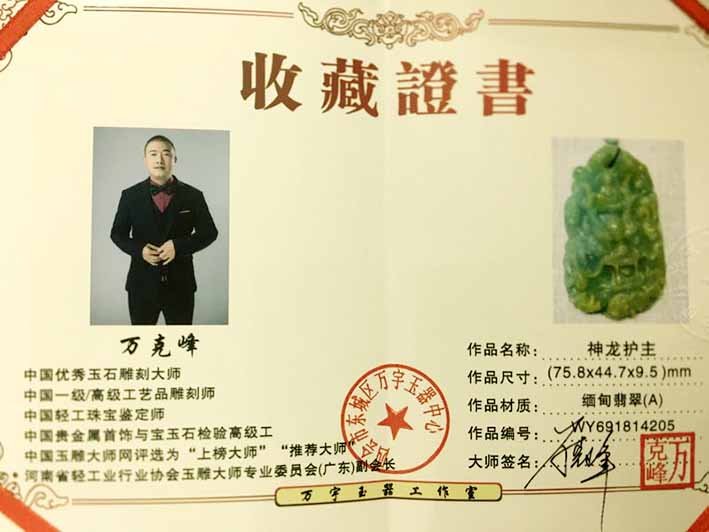 收藏證書
万克峰
中国优秀玉石雕刻大师
中国一级/高级工艺品雕刻师
中国轻工珠宝鉴定师
中国贵金属首饰与宝玉石检验高级工
中国玉雕大师网评选为“上榜大师”“推荐大师”
河南省轻工业行业协会玉雕大师专业委员会(广东)副会长
作品名称: 神龙护主
作品尺寸: (75.8x44.7x9.5)mm
作品材质: 缅甸翡翠(A)
作品编号: WY691814205
大师签名:
万克峰
会市东城区万宇玉器中心
万宇玉器工作室